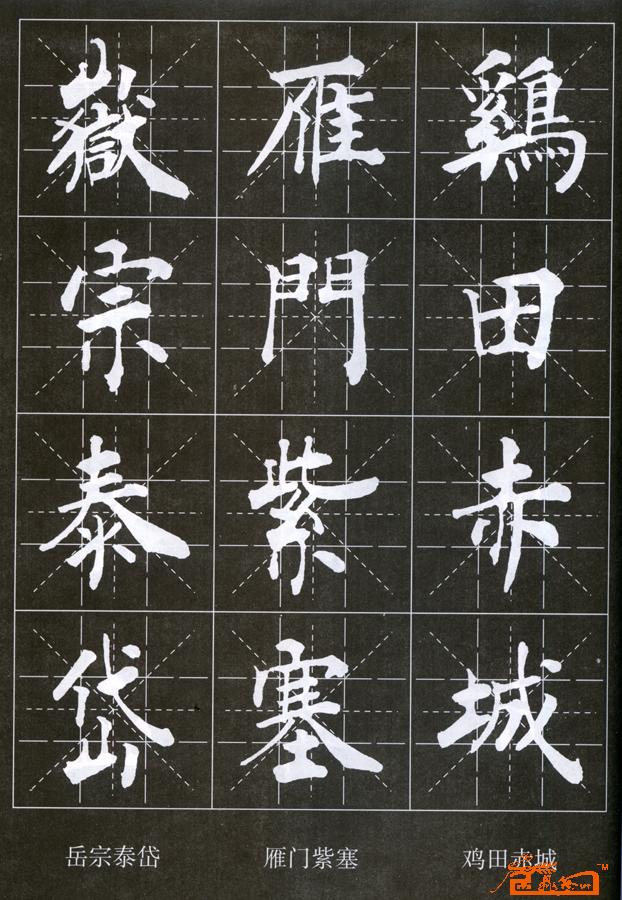 嶽宗泰岱
雁門紫塞
鷄田赤城
岳宗泰岱 雁门紫塞 鸡田赤城
TM